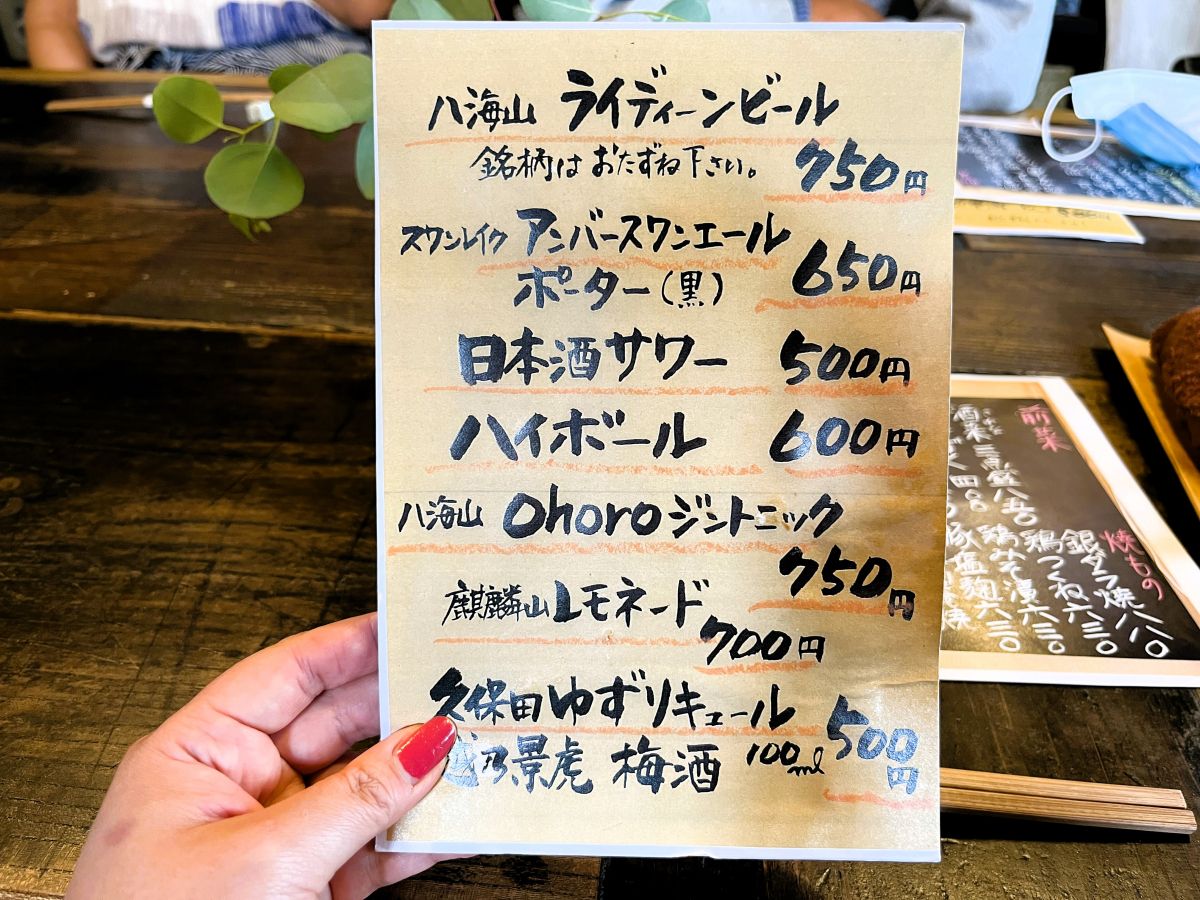 八海山 ライディーンビール
銘柄はおたずね下さい。 750円
スワンレイク アンバースワンエール
ポーター(黒) 650円
日本酒サワー 500円
ハイボール 600円
八海山 Ohoroジントニック
750円
麒麟山レモネード
700円
久保田ゆずリキュール
越乃景虎 梅酒 100ml 500円
前菜
酒菜三点盛八五〇
焼もの
銀ダラ焼八八〇
鶏つくね六三〇
鶏みそ漬六三〇